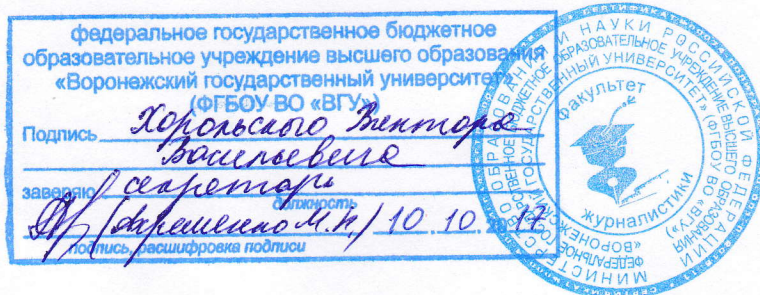 федеральное государственное бюджетное
образовательное учреждение высшего образования
«Воронежский государственный университет»
(ФГБОУ ВО «ВГУ»)
Подпись Хорольского Виктора
Васильевича
заверяю секретарь
должность
М.Н./ 10 10. 2017
подпись, расшифровка подписи
МИНИСТЕРСТВО ОБРАЗОВАНИЯ И НАУКИ РОССИЙСКОЙ ФЕДЕРАЦИИ
ФЕДЕРАЛЬНОЕ ГОСУДАРСТВЕННОЕ БЮДЖЕТНОЕ ОБРАЗОВАТЕЛЬНОЕ УЧРЕЖДЕНИЕ ВЫСШЕГО ОБРАЗОВАНИЯ
«ВОРОНЕЖСКИЙ ГОСУДАРСТВЕННЫЙ УНИВЕРСИТЕТ» (ФГБОУ ВО «ВГУ»)
Факультет
журналистики